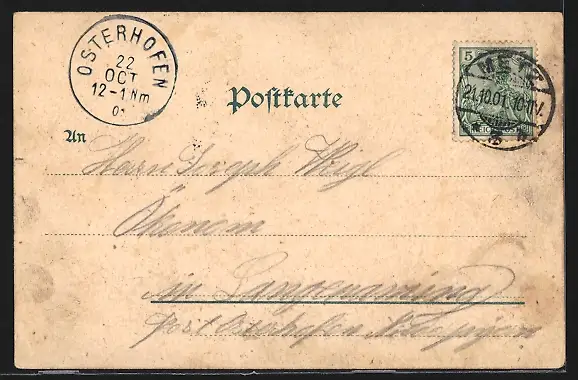 OSTERHOFEN
22
OCT
12-1 Nm
01
5
METZ
21.10.01. 10-11V.
Postkarte
An
Herrn Joseph Weigl
Ökonom
in Langenamming
Post Osterhofen Niederbayern